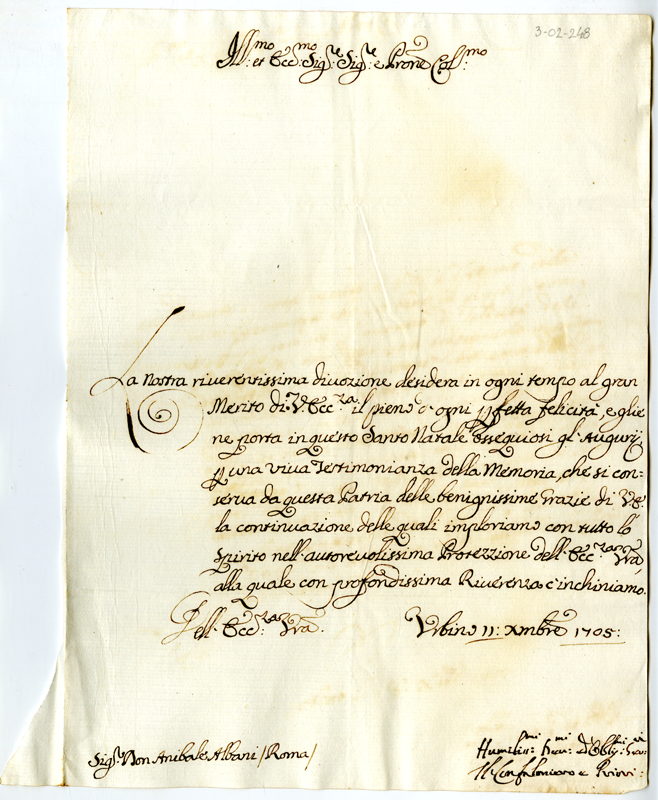 3-02-248
Ill:mo et Ecc:mo Sig:re Sig:re e Prone Col:mo
La nostra riverentissima divozione desidera in ogni tempo al gran
Merito di V. Ecc:za il pieno d'ogni pfetta felicità, e glie
ne porta in questo Santo Natale Ossequiosi gl'Augurij
p una viva Testimonianza della Memoria, che si con=
serva da questa Patria delle benignissime Grazie di V.E.
la continuazione delle quali imploriamo con tutto lo
Spirito nell'autorevolissima Protezzione dell'Ecc:za Vra,
alla quale con profondissima Riverenza c'inchiniamo.
Dell'Ecc:za Vra. Urbino 11: Xmbre 1705:
Sig:r Don Anibale Albani /Roma/
Humiliss:mi
Il Confaloniero e Priori: